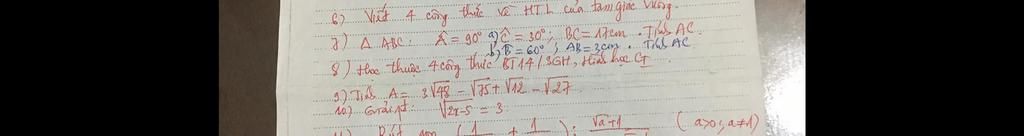 6) Viết 4 công thức về HTL của tam giác vuông.
7) Δ ABC: Â = 90° a) Ĉ = 30°; BC = 17cm. Tính AC.
b) B̂ = 60°; AB = 3cm. Tính AC
8) Học thuộc 4 công thức BT14/SGK, Hình học CI
9) Tính A = 3√48 - √75 + √12 - √27
10) Giải pt: √2x-5 = 3
11) Rút gọn (1 + 1): √a+1 (a>0; a≠1)